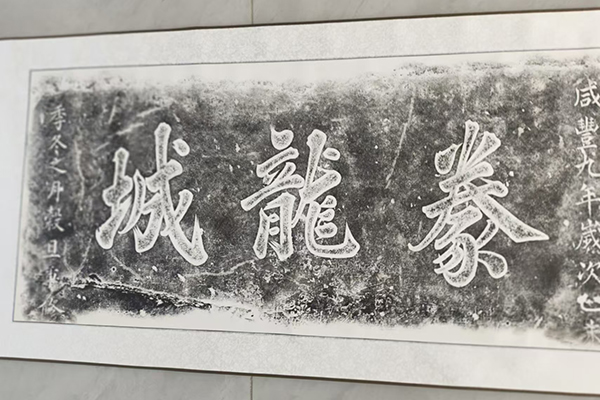 咸豐九年歲次己未
豢龍城
季冬之月穀旦